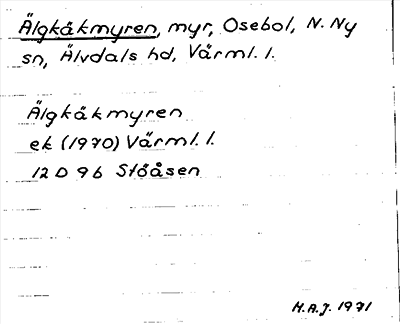 Älgkåkmyren, myr, Osebol, N. Ny
sn, Älvdals hd, Värml. l.
Älgkåkmyren
ek (1970) Värml. l.
12 D 9 b Stöåsen
H.A.J. 1971